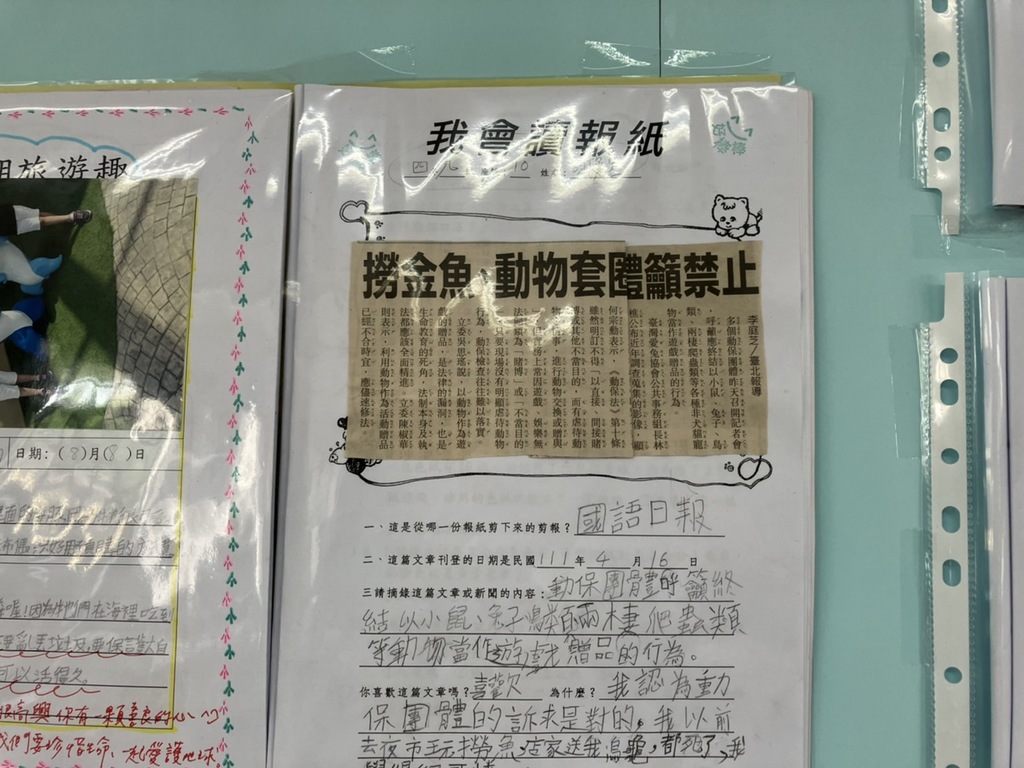 旅遊趣
日期:(8)月(8)日
在海裡吃到
可以活很久。
很高興你有一顆善良的心
我們要珍惜生命,一起愛護地球。
我會讀報紙
撈金魚、動物套圈 團體籲禁止
李庭芝/臺北報導
多個動保團體昨天召開記者會
,呼籲應終結以小鼠、兔子、鳥
類、兩棲爬蟲類等各種非犬貓寵
物當作遊戲贈品的行為。
臺灣愛兔協會公共事務組長林
公布近年調查蒐集的影像,顯
何宗勳表示,《動保法》第十條
雖然明訂不得「以直接、間接賭
博或其他不當目的,而有虐待動
物情事,進行動物交換或贈與
上常因遊戲、娛樂無
法歸類為「賭博」或「不當目的
只要現場沒有明顯虐待動物
行為,動保檢查往往難以落實。
立委吳思瑤說,以動物作為遊
戲的贈品,是法律的漏洞,也是
生命教育的死角,法制本身及執
法都應該全面精進。立委陳椒華
則表示,利用動物作為活動贈品
已經不合時宜,應儘速修法。
一、這是從哪一份報紙剪下來的剪報?國語日報
二、這篇文章刊登的日期是民國111年4月16日
三請摘錄這篇文章或新聞的內容:動保團體呼籲終
結以小鼠、兔子鳥類兩棲爬蟲類
等動物當作遊戲贈品的行為。
你喜歡這篇文章嗎?喜歡 為什麼?我認為動
保團體的訴求是對的。我以前
去夜市玩撈魚,店家送我烏龜,都死了,我